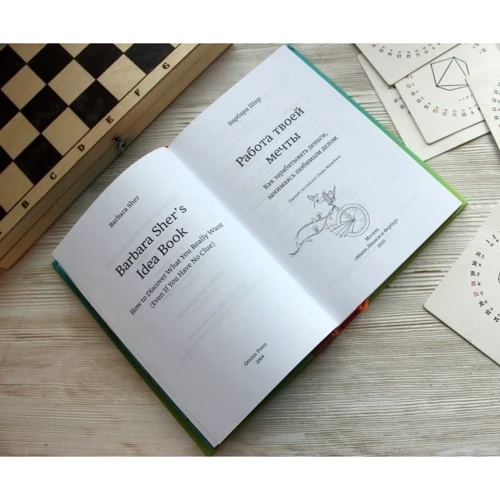 Barbara Sher
Barbara Sher's
Idea Book
How to Discover What You Really Want
(Even If You Have No Clue)
Genius Press
2004
Барбара Шер
Работа твоей
мечты
Как зарабатывать деньги,
занимаясь любимым делом
Москва
«Манн, Иванов и Фербер»